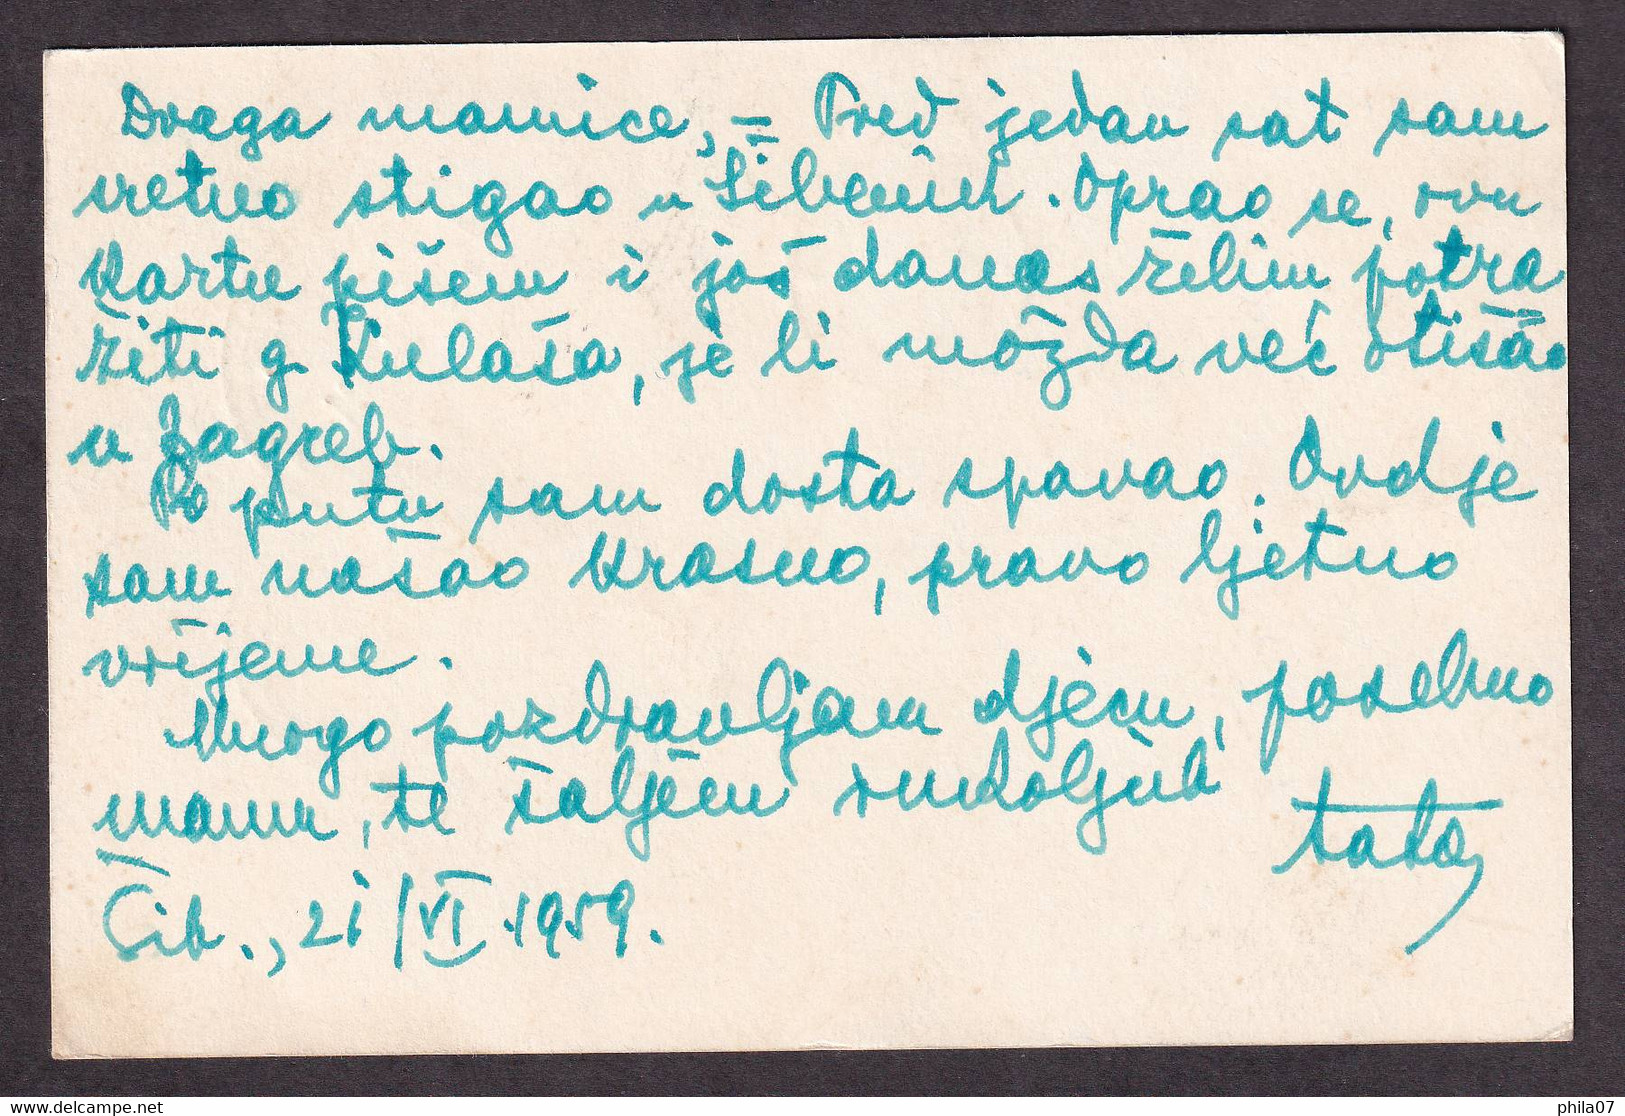 Draga mamice, = Pred jedan sat sam
sretno stigao u Šibenik. Oprao se, ovu
kartu pišem i još danas želim potra
žiti g. Kulaša, je li možda već otišao
u Zagreb.
Po putu sam dosta spavao. Ovdje
sam našao krasno, pravo ljetno
vrijeme.
Mnogo pozdravljam djecu, posebno
mamu, te šaljem rukoljub
tata
Šib., 21/VI.1959.
phila07